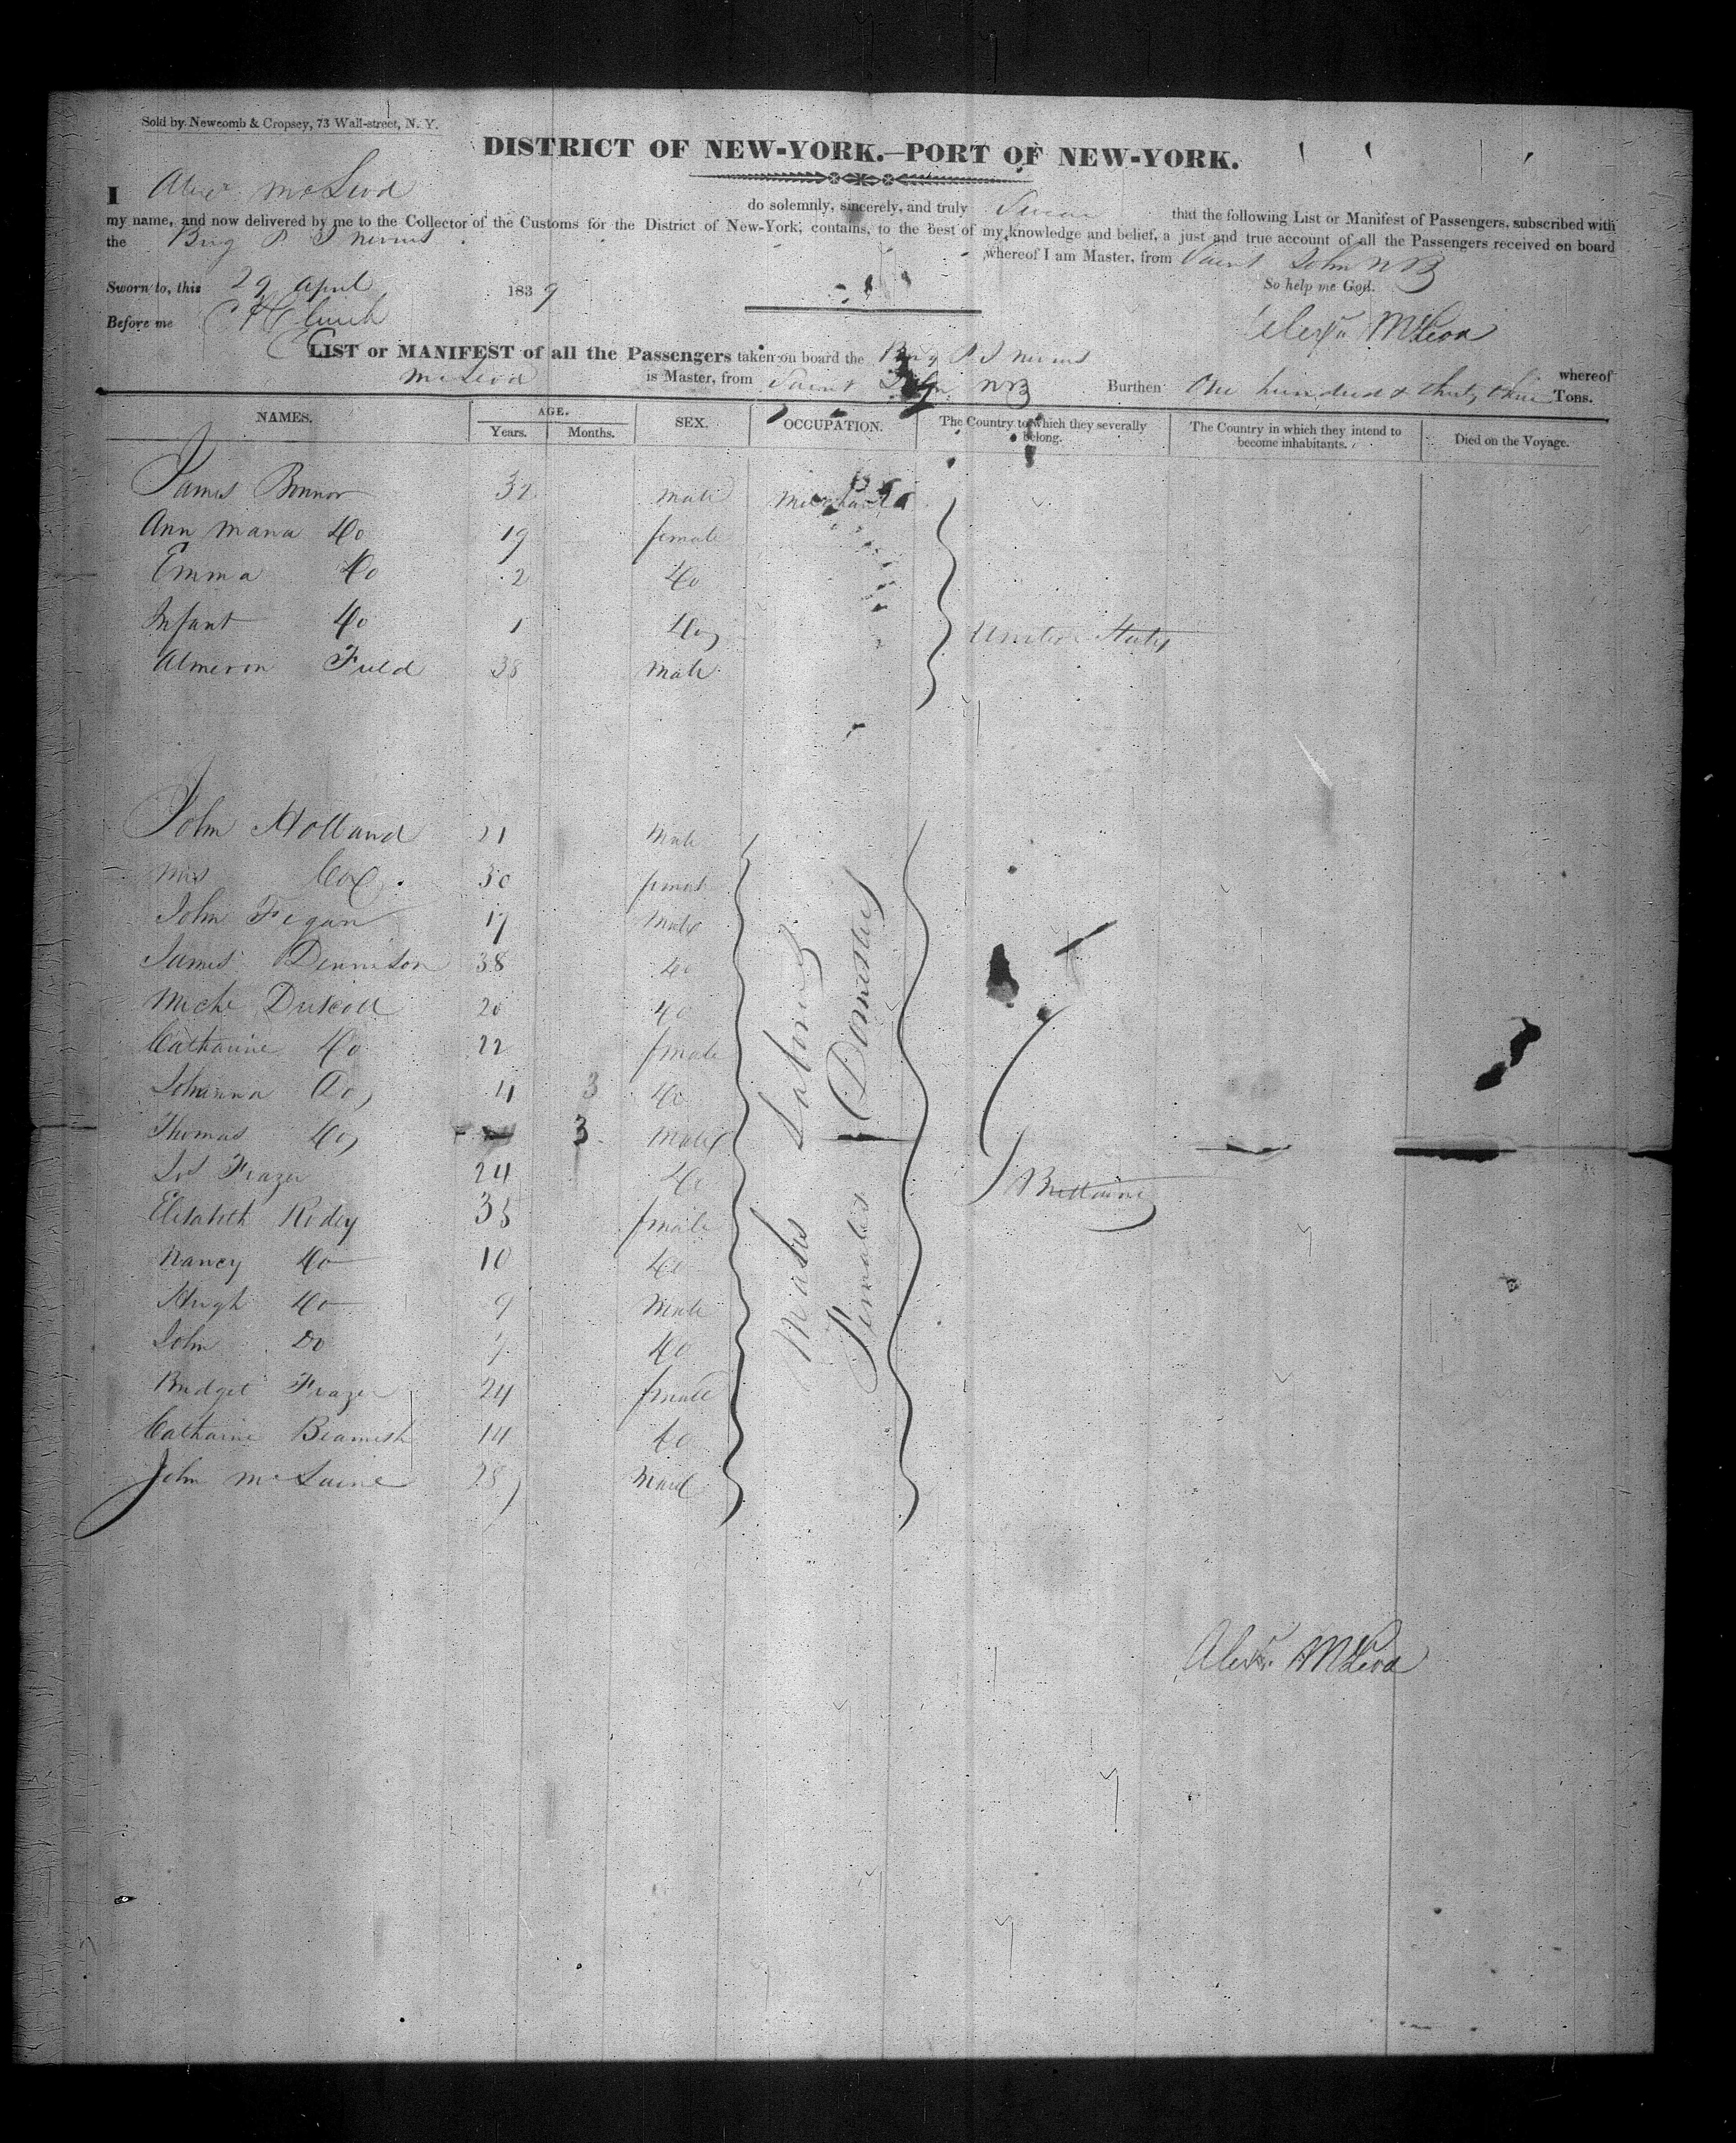 Sold by Newcomb & Cropsey, 73 Wall-street, N. Y.
DISTRICT OF NEW-YORK.—PORT OF NEW-YORK.
I Alexr McLeod do solemnly, sincerely, and truly Swear that the following List or Manifest of Passengers, subscribed with
my name, and now delivered by me to the Collector of the Customs for the District of New-York, contains, to the best of my knowledge and belief, a just and true account of all the Passengers received on board
the Brig P I Nevius whereof I am Master, from Saint John NB
Sworn to, this 29 April 1839 So help me God.
Before me Alexr McLeod
LIST or MANIFEST of all the Passengers taken on board the Brig P I Nevius whereof
McLeod is Master, from Saint John NB Burthen One hundred & thirty three Tons.
NAMES. AGE. SEX. OCCUPATION. The Country to which they severally belong. The Country in which they intend to become inhabitants. Died on the Voyage.
Years. Months.
James Bonnor 32 male Merchant
Ann Maria Do 19 female
Emma Do 2 Do
Infant Do 1 Do
United States
Almeron Field 38 Male
John Holland 21 Male
Mrs Cox 30 female
John Fegan 17 Male
James Dennison 38 do
Miche Driscoll 20 do
Catharine Do 22 female
Johanna Do 4 3 do
Thomas Do 3 Male
Jos Frazer 24 do
Brittaine
Elizabeth Rodey 35 female
Nancy Do 10 do
Hugh Do 9 Male
John Do 7 do
Bridget Frazer 24 female
Catharine Beamish 14 do
John McLaine 28 Male
Males Labourers
Females Domesticks
Alexr. McLeod